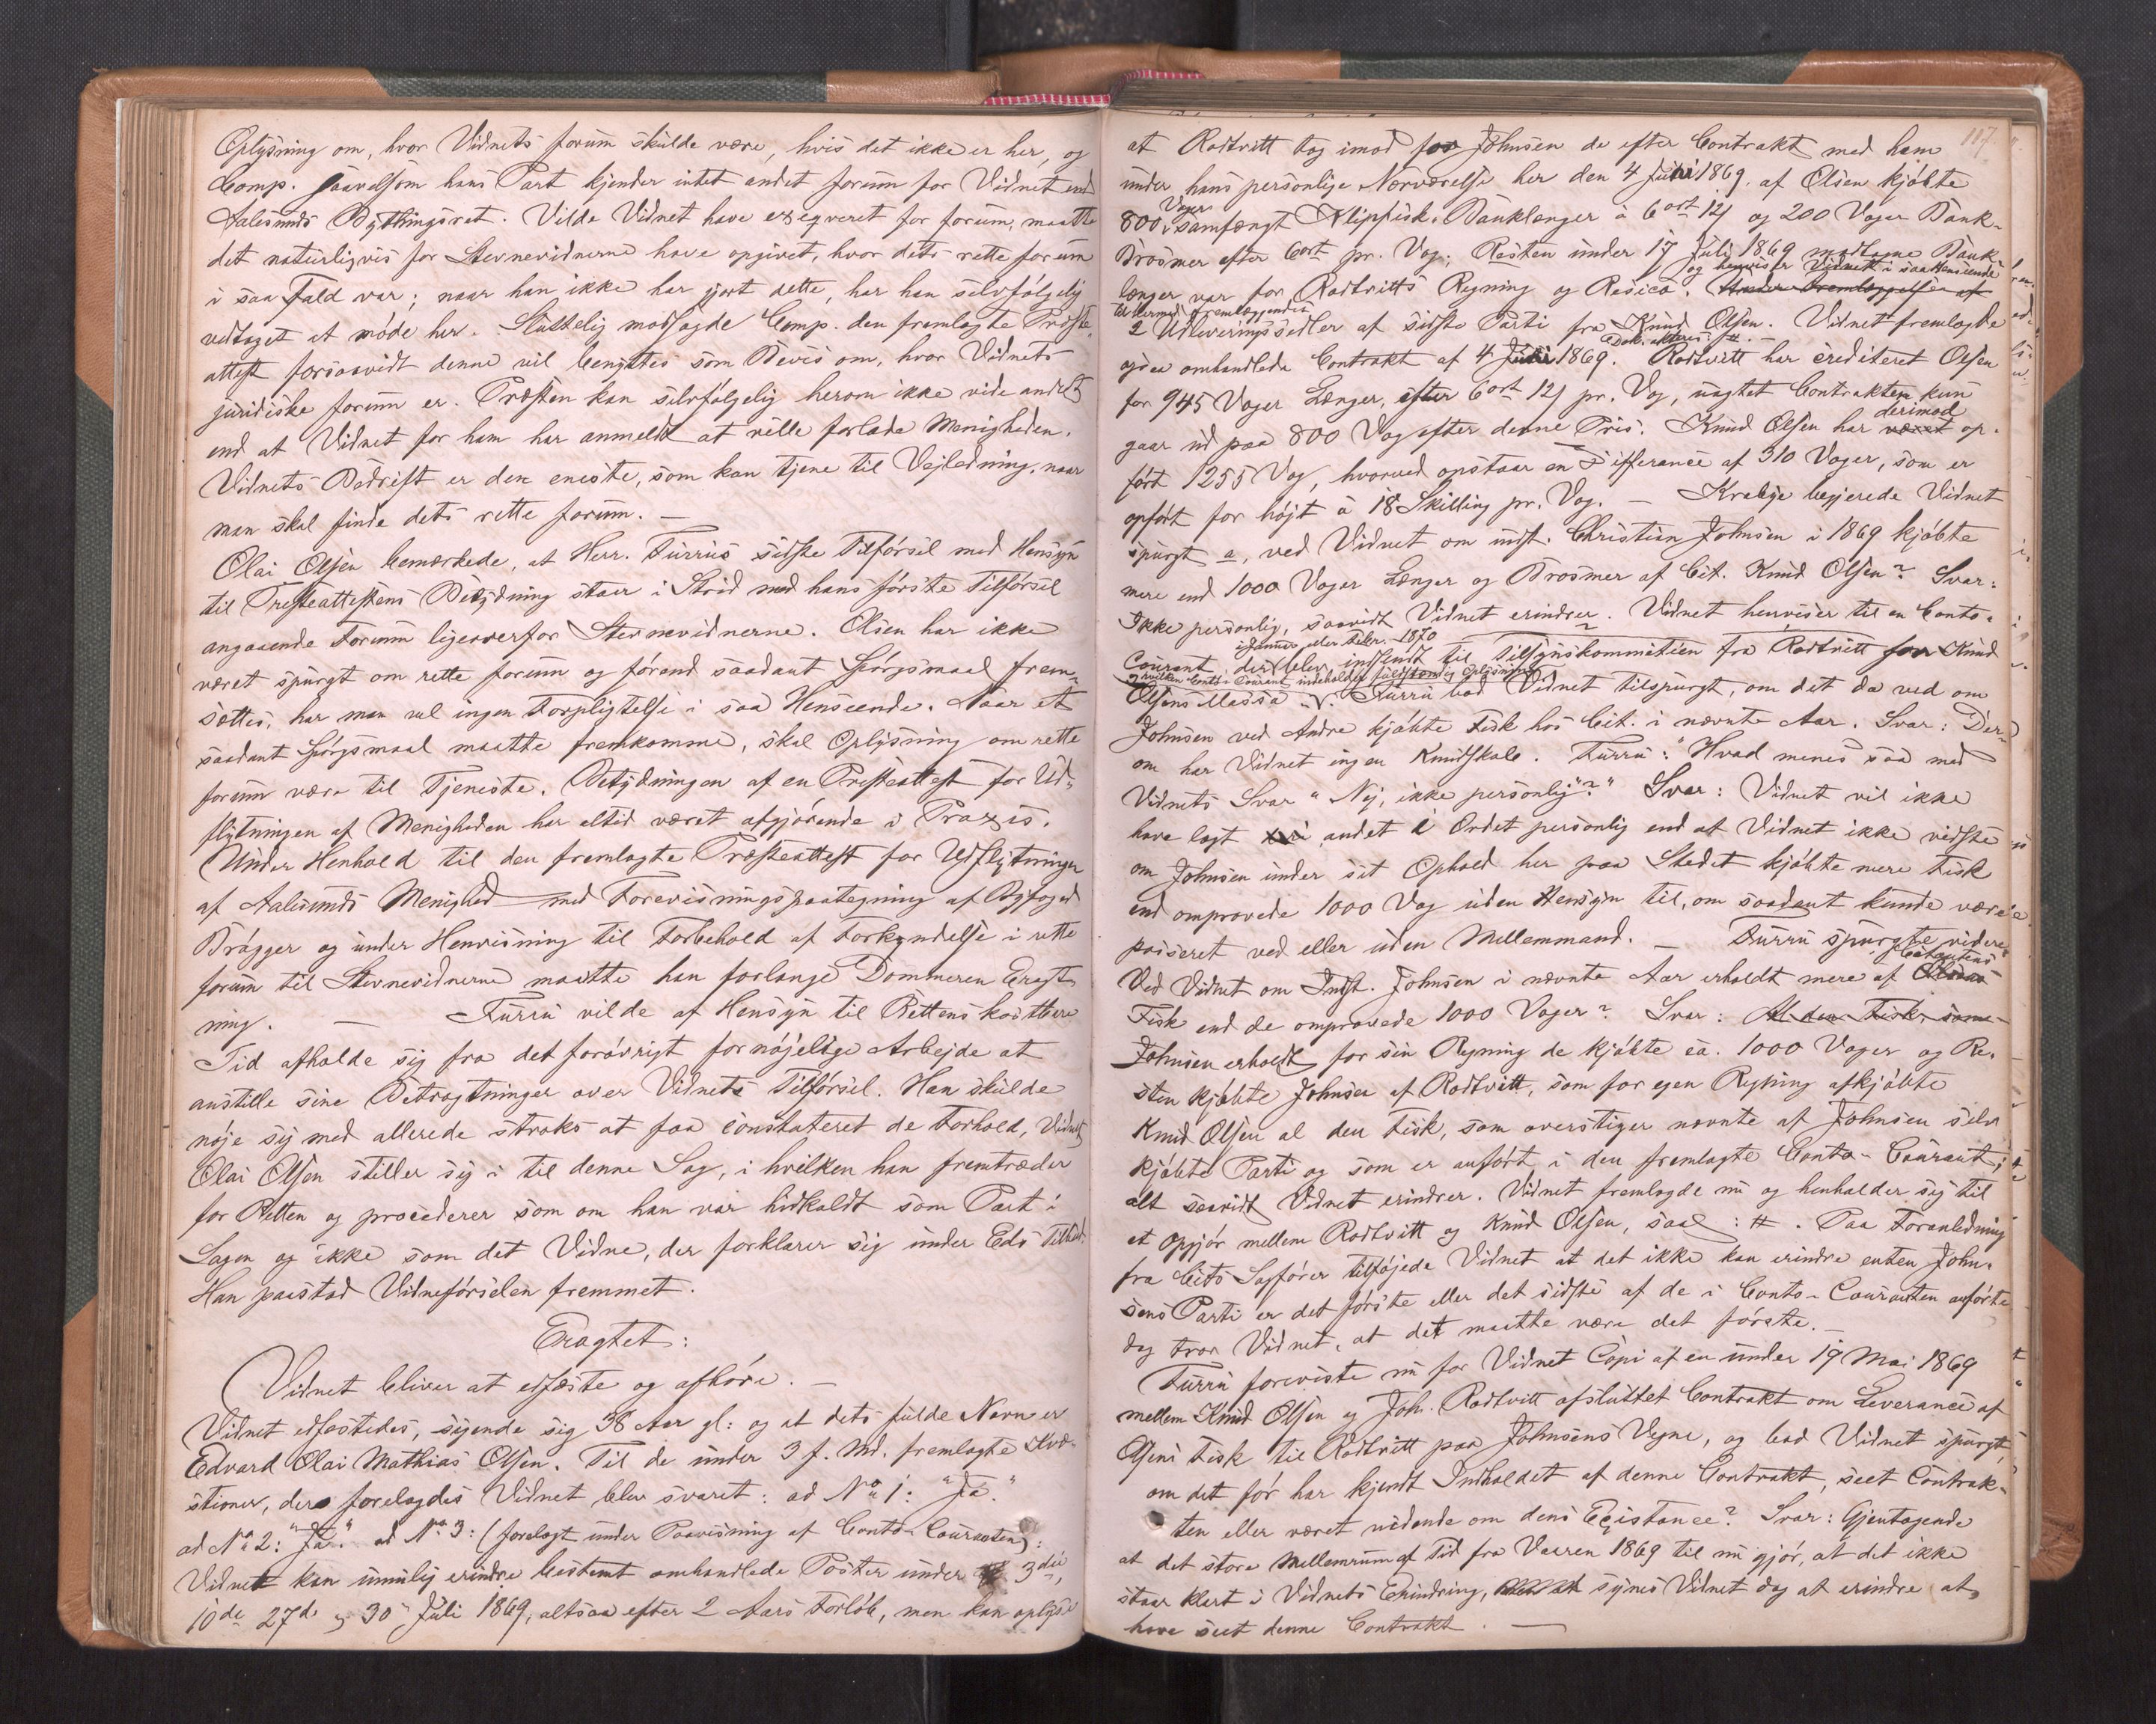 Oplysning om, hvor Vidnets forum skulde være, hvis det ikke er her, og
Comp. saavelsom hans Part kjender intet andet forum for Vidnet end
Aalesunds Bythingsret. Vilde Vidnet have exequeret for forum, maatte
det naturligvis for Stevnevidnerne have opgivet, hvor dets rette forum
i saa Fald var; naar han ikke har gjort dette, har han selvfølgelig
vedtaget at møde her. Sluttelig modsagde Comp. den fremlagte Præste
attest forsaavidt denne vil benyttes som Bevis om, hvor Vidnets
juridiske forum er. Præsten kan selvfølgelig herom ikke vide andet
end at Vidnet for ham har anmeldt at ville forlade Menigheden.
Vidnets Bedrift er den eneste, som kan tjene til Vejledning, naar
man skal finde dets rette forum. —
Olai Olsen bemærkede, at Herr. Furrus sidste Tilførsel med Hensyn
til Presteattestens Betydning staar i Strid med hans første Tilførsel
angaaende Forum ligeoverfor Stevnevidnerne. Olsen har ikke
været spurgt om rette forum og førend saadant Spørgsmaal frem-
sættes, har man vel ingen Forpligtelse i saa Henseende. Naar et
saadant Spørgsmaal maatte fremkomme, skal Oplysning om rette
forum være til Tjeneste. Betydningen af en Presteattest for Ud-
flytningen af Menigheden har altid været afgjørende i Praxis.
Under Henhold til den fremlagte Præsteattest for Udflytningen
af Aalesunds Menighed med Forevisningspaategning af Byfoged
Brøgger og under Henvisning til Forbehold af Forkyndelse i rette
forum til Stevnevidnerne maatte han forlange Dommeren Eragt-
ning. — Furru vilde af Hensyn til Rettens kostbare
Tid afholde sig fra det forøvrigt fornøjelige Arbejde at
anstille sine Betragtninger over Vidnets Tilførsel. Han skulde
nøje sig med allerede straks at faa constateret de Forhold, Vidnet
Olai Olsen stiller sig i til denne Sag, i hvilken han fremtræder
for Retten og procederer som om han var hidkaldt som Part i
Sagen og ikke som det Vidne, der forklarer sig under Eds Tilbud.
Han paastod Vidneførselen fremmet.
Eragtet:
Vidnet bliver at edfæste og afhøre. —
Vidnet edfæstedes, sigende sig 38 Aar gl: og at dets fulde Navn er
Edvard Olai Mathias Olsen. Til de under 3 f. Md. fremlagte Kvæ-
stioner, der forelagdes Vidnet blev svaret: ad No 1: "Ja."
ad No 2: "Ja." ad No 3: (forelagt under Paavisning af Conto-Couranten):
Vidnet kan umulig erindre bestemt omhandlede Poster under 3die,
10de 27de og 30 Juli 1869, altsaa efter 2 Aars Forløb, men kan oplyse
117
at Rødtvitt tog imod for Johnsen de efter Contrakt med ham
under hans personlige Nærværelse her den 4 Juni 1869. af Olsen kjøbte
Voger
800 samfængt Klipfisk. Banklenger à 6 ort 12 β og 200 Voger Bank-
Brosmer efter 6 ort pr. Vog; Resten under 17 Juli 1869 modtagne Bank
og henviser Vidnet i saa Henseende
længer var for Rødtvitts Regning og Resico. Under Fremlæggelse af
til hermed fremlæggendes
2 Udleveringssedler af sidste Parti fra Knud Olsen. Vidnet fremlagde
Dok. akteres #. —
også omhandlede Contrakt af 4 Juni 1869. Rødtvitt har crediteret Olsen
for 945 Voger Længer, efter 6 ort 12 β pr. Vog, uagtet Contrakten kun
derimod
gaar ud paa 800 Vog efter denne Pris. Knud Olsen har været op-
ført 1255 Vog, hvorved opstaar en Differance af 310 Voger, som er
opført for højt à 18 Skilling pr. Vog. — Krebye begjerede Vidnet
spurgt a, ved Vidnet om indst. Christian Johnsen i 1869 kjøbte
mere end 1000 Voger Længer og Brosmer af Cit. Knud Olsen? Svar:
Ikke personlig, saavidt Vidnet erindrer. Vidnet henviser til en Conto-
i Januar eller Febr. 1870
Courant, der blev indsendt til Tilsynskommitéen fra Rødtvitt for Knud
og hvilken Conto-Courant indeholder fuldstændig Oplysning
Olsens Massa. Furru bad Vidnet tilspurgt, om det da ved om
Johnsen ved Andre kjøbte Fisk hos Cit. i nævnte Aar. Svar: Der-
om har Vidnet ingen Kundskab. Furru: "Hvad menes saa med
Vidnets Svar "Nej, ikke personlig"?" Svar: Vidnet vil ikke
have lagt andet i Ordet personlig end at Vidnet ikke vidste
om Johnsen under sit Ophold her paa Stedet kjøbte mere Fisk
end omprovede 1000 Vog uden Hensyn til, om saadant kunde være
passeret ved eller uden Mellemmand. — Furru spurgte videre
Citantens
Ved Vidnet om Indst. Johnsen i nævnte Aar erholdt mere af Olsens
Fisk end de omprovede 1000 Voger? Svar: Al den Fisk, som
Johnsen erholdt for sin Regning de kjøbte ca. 1000 Voger og Re-
sten kjøbte Johnsen af Rødtvitt, som for egen Regning afkjøbte
Knud Olsen al den Fisk, som overstiger nævnte af Johnsen selv
kjøbte Parti og som er anført i den fremlagte Conto-Courant;
alt saavidt Vidnet erindrer. Vidnet fremlagde nu og henholder sig til
et Opgjør mellem Rødtvitt og Knud Olsen, saal: #. Paa Foranledning
fra Cits Sagfører tilføjede Vidnet at det ikke kan erindre enten John-
sens Parti er det første eller det sidste af de i Conto-Couranten anførte
dog tror Vidnet, at det maatte være det første. —
Furru foreviste nu for Vidnet Copi af en under 19 Mai 1869
mellem Knud Olsen og Joh. Rødtvitt afsluttet Contrakt om Leverance af
Olsens Fisk til Rødtvitt paa Johnsens Vegne, og bad Vidnet spurgt,
om det før har kjendt Indholdet af denne Contrakt, seet Contrak-
ten eller været vidende om dens Existance? Svar: Gjentagende
at det store Mellemrum af Tid fra Vaaren 1869 til nu gjør, at det ikke
staar klart i Vidnets Erindring, synes Vidnet dog at erindre at
have seet denne Contrakt. —